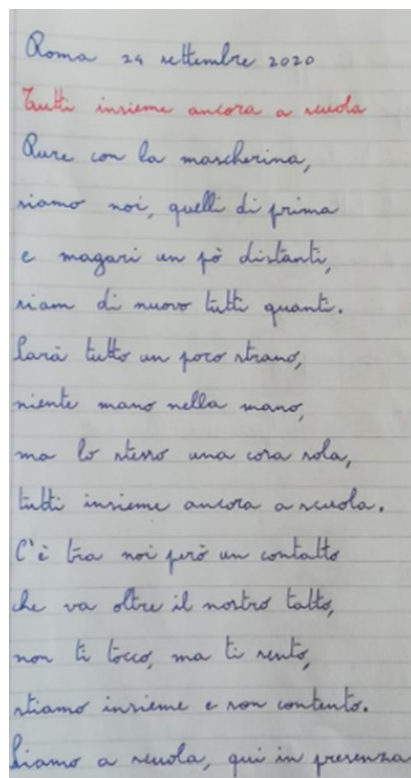 Roma 24 settembre 2020
Tutti insieme ancora a scuola
Pure con la mascherina,
siamo noi, quelli di prima
e magari un pò distanti,
siam di nuovo tutti quanti.
Sarà tutto un poco strano,
niente mano nella mano,
ma lo stesso una cosa sola,
tutti insieme ancora a scuola.
C'è tra noi però un contatto
che va oltre il nostro tatto,
non ti tocco, ma ti sento,
stiamo insieme e son contento.
Siamo a scuola, qui in presenza